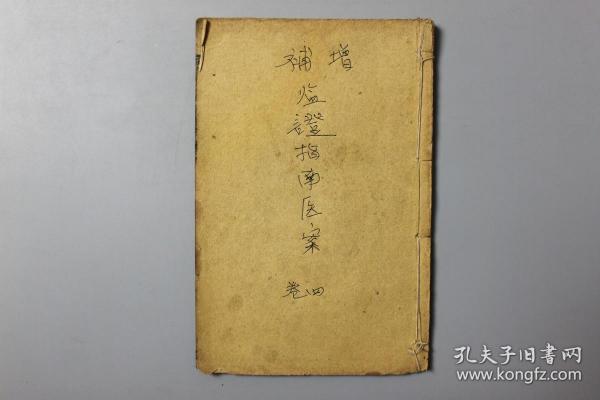 增補
临證指南医案
卷四
孔夫子旧書网
www.kongfz.com